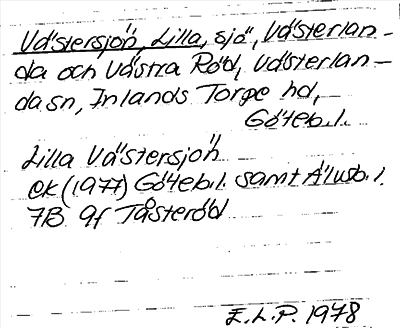 Västersjön, Lilla, sjö, Västerlan-
da och Västra Röd, Västerlan-
da sn, Inlands Torpe hd,
Göteb.l.
Lilla Västersjön
ek (1977) Göteb.l. samt Älvsb.l.
7B 9f Tåsteröd
E.L.P. 1978